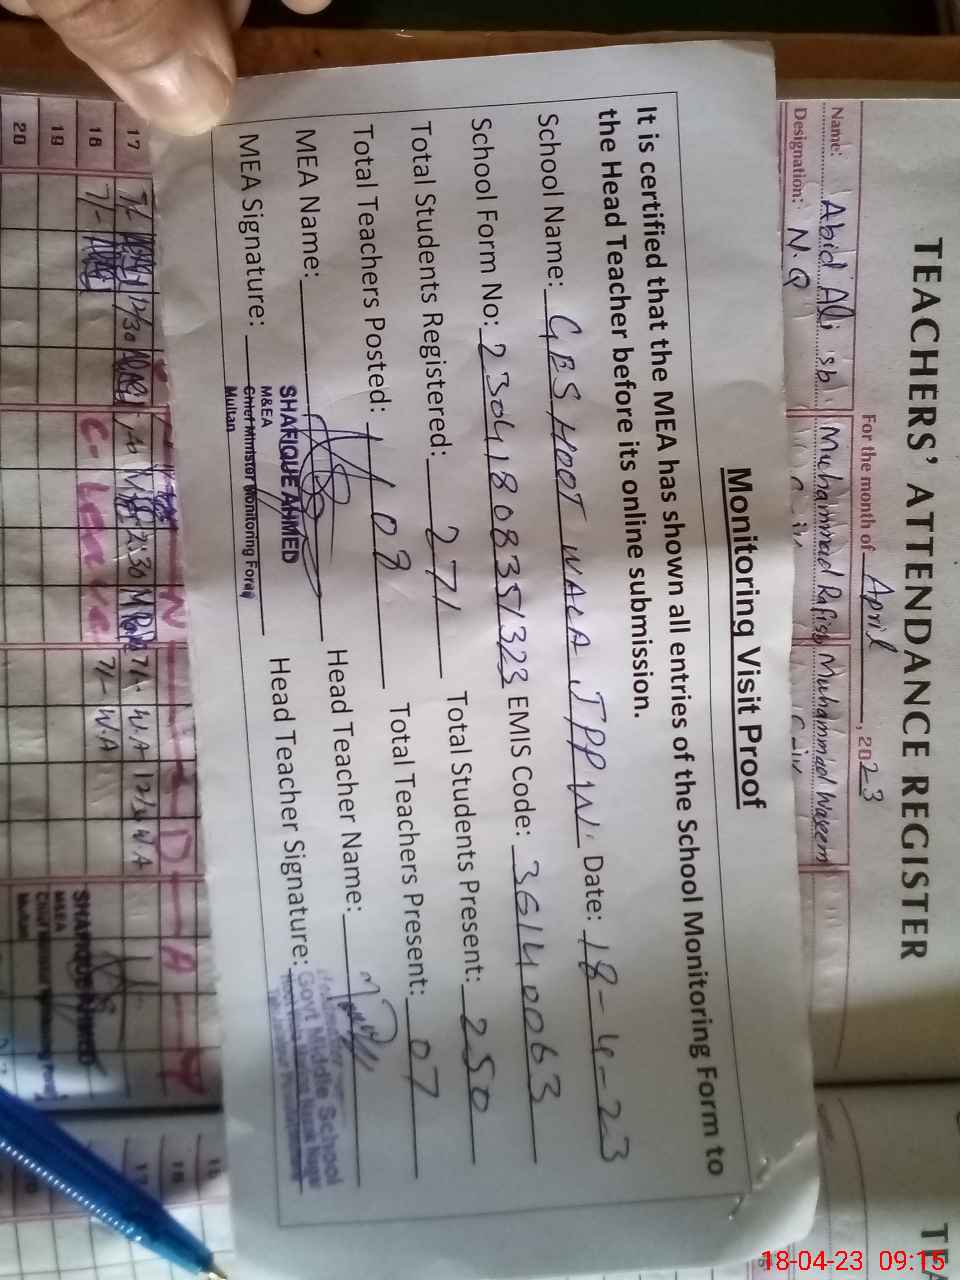 TEACHERS' ATTENDANCE REGISTER
For the month of April, 2023
Name: Abid Ali sb Muhammad Rafi sb Muhammad Waseem
Designation: N.Q
Monitoring Visit Proof
It is certified that the MEA has shown all entries of the School Monitoring Form to
the Head Teacher before its online submission.
School Name: GES HOOT WALA JPPW Date: 18-4-23
School Form No: 230418083351323 EMIS Code: 36140063
Total Students Registered: 271 Total Students Present: 250
Total Teachers Posted: 08 Total Teachers Present: 07
MEA Name: Head Teacher Name:
MEA Signature: Head Teacher Signature:
SHAFIQUE AHMED
M&EA
Chief Minister Monitoring Force
Multan
Govt. Middle School
17 7/- 12/30 2:30 7/- W.A 12/30 W A
18 7/- C-Leave 7/- W.A
19
20
SHAFIQUE AHMED
M&EA
Multan
18-04-23 09:15